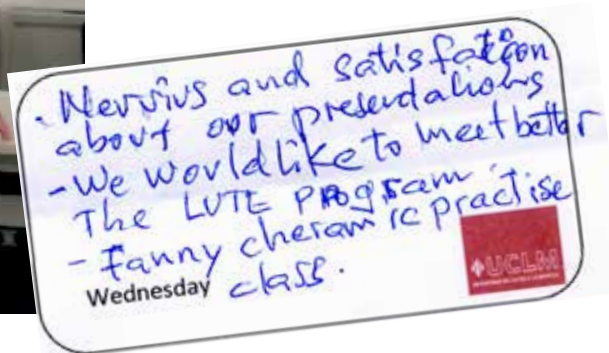 . Nervius and satisfation
about our presendations
- We would like to meet better
The LUTE Program
- Fanny cheramic practise
class.
Wednesday
UCLM